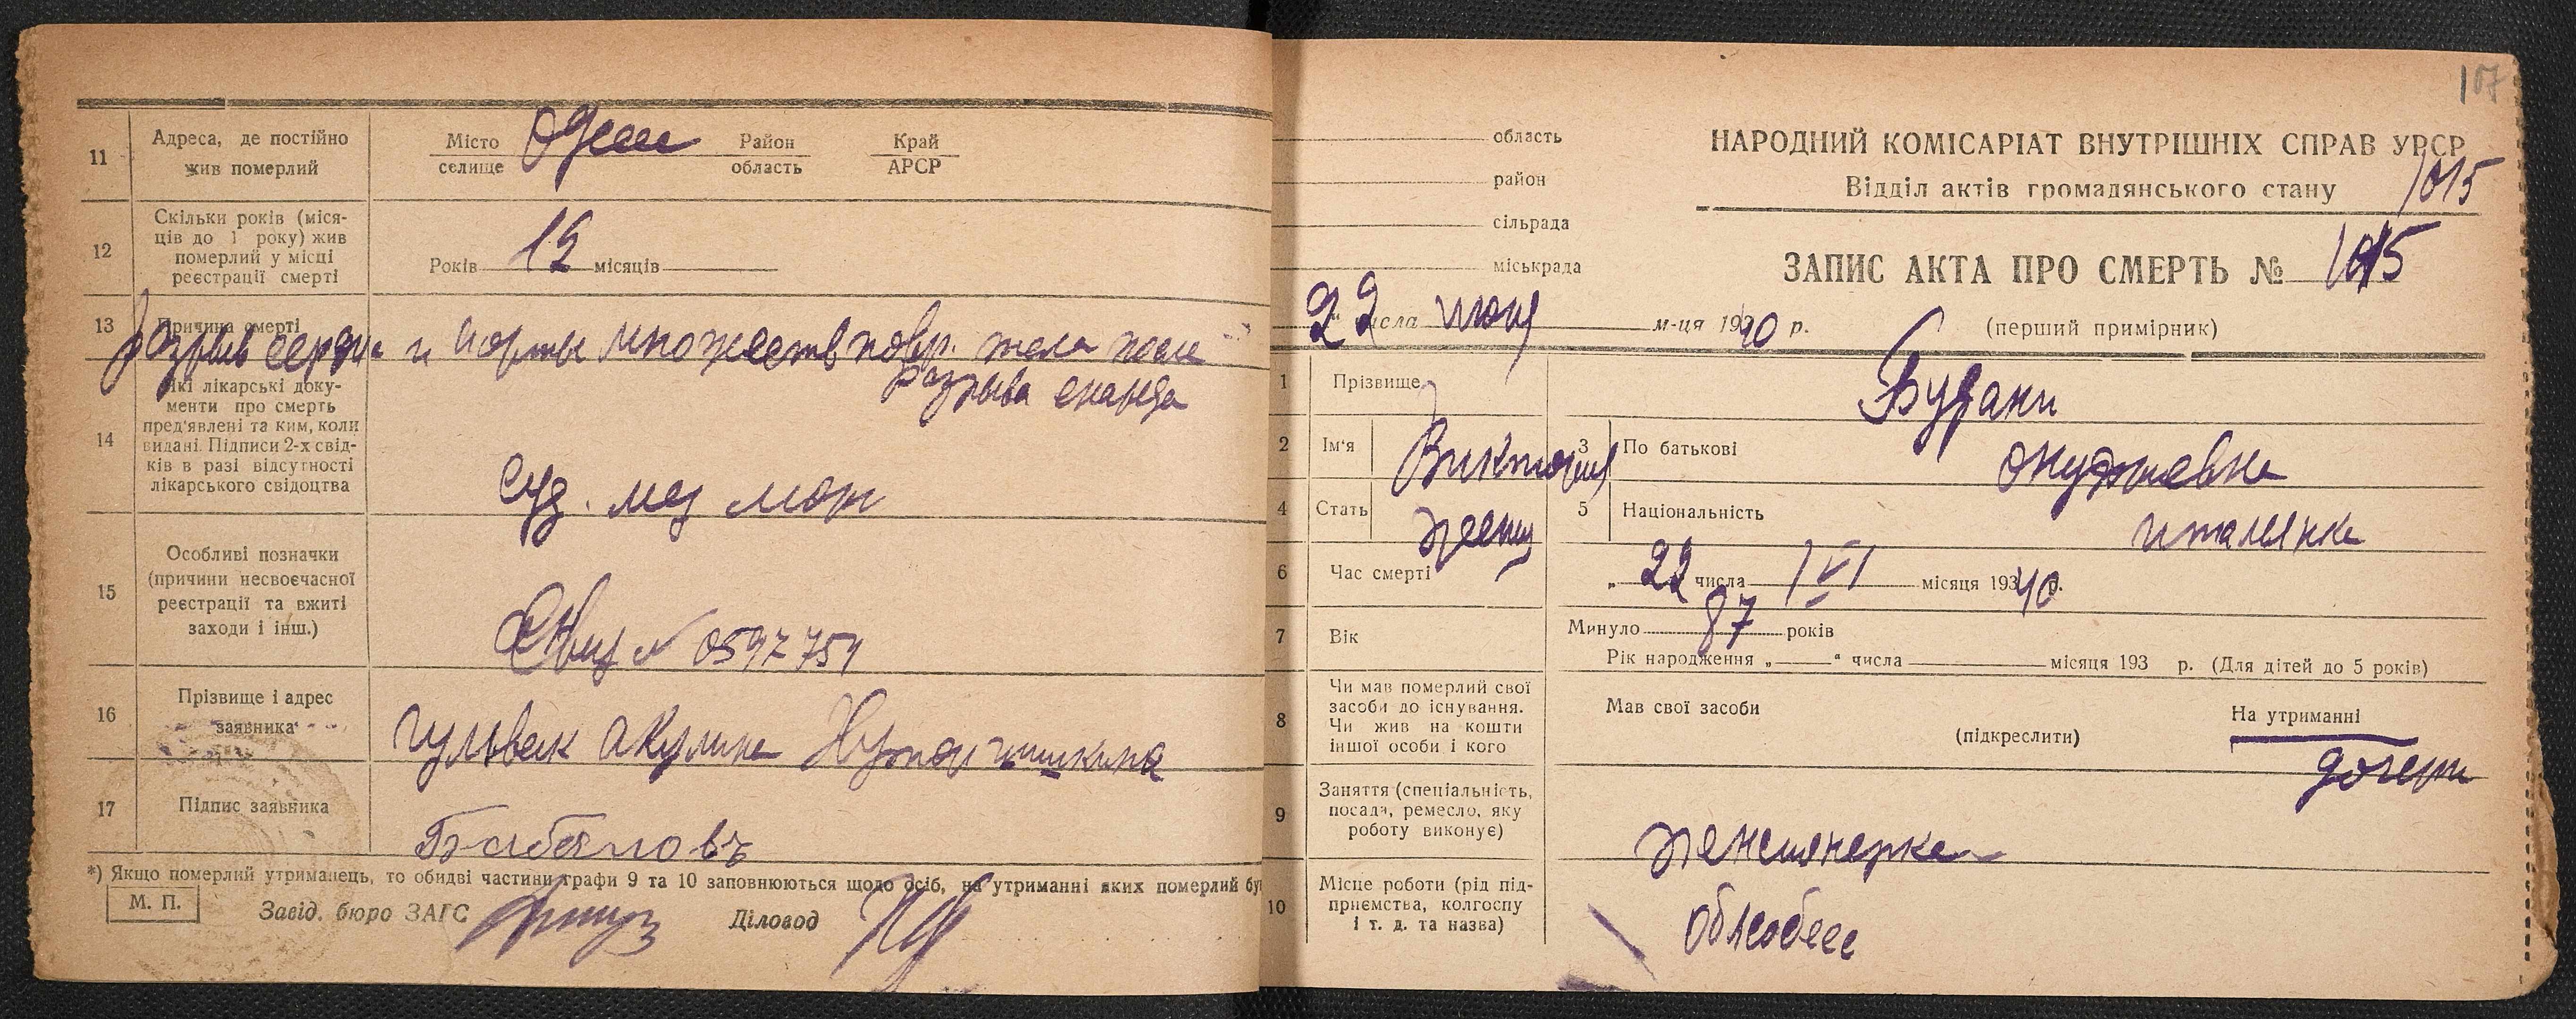 11
Адреса, де постійно
жив померлий
Місто
селище
Одесса
Район
область
Край
АРСР
12
Скільки років (міся-
ців до 1 року) жив
померлий у місці
реєстрації смерті
Років
місяців
13
Причина смерті
Разрыв сердца и аорты множеств повр. тела после
разрыва снаряда
14
Які лікарські доку-
менти про смерть
пред'явлені та ким, коли
видані. Підписи 2-х свід-
ків в разі відсутності
лікарського свідоцтва
Суд. мед
15
Особливі позначки
(причини несвоєчасної
реєстрації та вжиті
заходи і інш.)
№ 0597751
16
Прізвище і адрес
заявника
Акулина
17
Підпис заявника
*) Якщо померлий утриманець, то обидві частини графи 9 та 10 заповнюються щодо осіб, на утриманні яких померлий бу
М. П.
Завід. бюро ЗАГС
Діловод
107
область
район
сільрада
міськрада
НАРОДНИЙ КОМІСАРІАТ ВНУТРІШНІХ СПРАВ УРСР
Відділ актів громадянського стану
1015
ЗАПИС АКТА ПРО СМЕРТЬ № 1015
22 числа июня м-ця 1940 р.
(перший примірник)
1
Прізвище
2
Ім'я
Виктория
3
По батькові
4
Стать
женщ
5
Національність
италянка
6
Час смерті
„ 22 числа VI місяця 1940 р.
7
Вік
Минуло 87 років
Рік народження „ “ числа місяця 193 р. (Для дітей до 5 років)
8
Чи мав померлий свої
засоби до існування.
Чи жив на кошти
іншої особи і кого
Мав свої засоби
(підкреслити)
На утриманні
дочери
9
Заняття (спеціальність,
посада, ремесло, яку
роботу виконує)
пенсионерка
10
Місце роботи (рід під-
приємства, колгоспу
і т. д. та назва)
облсобес